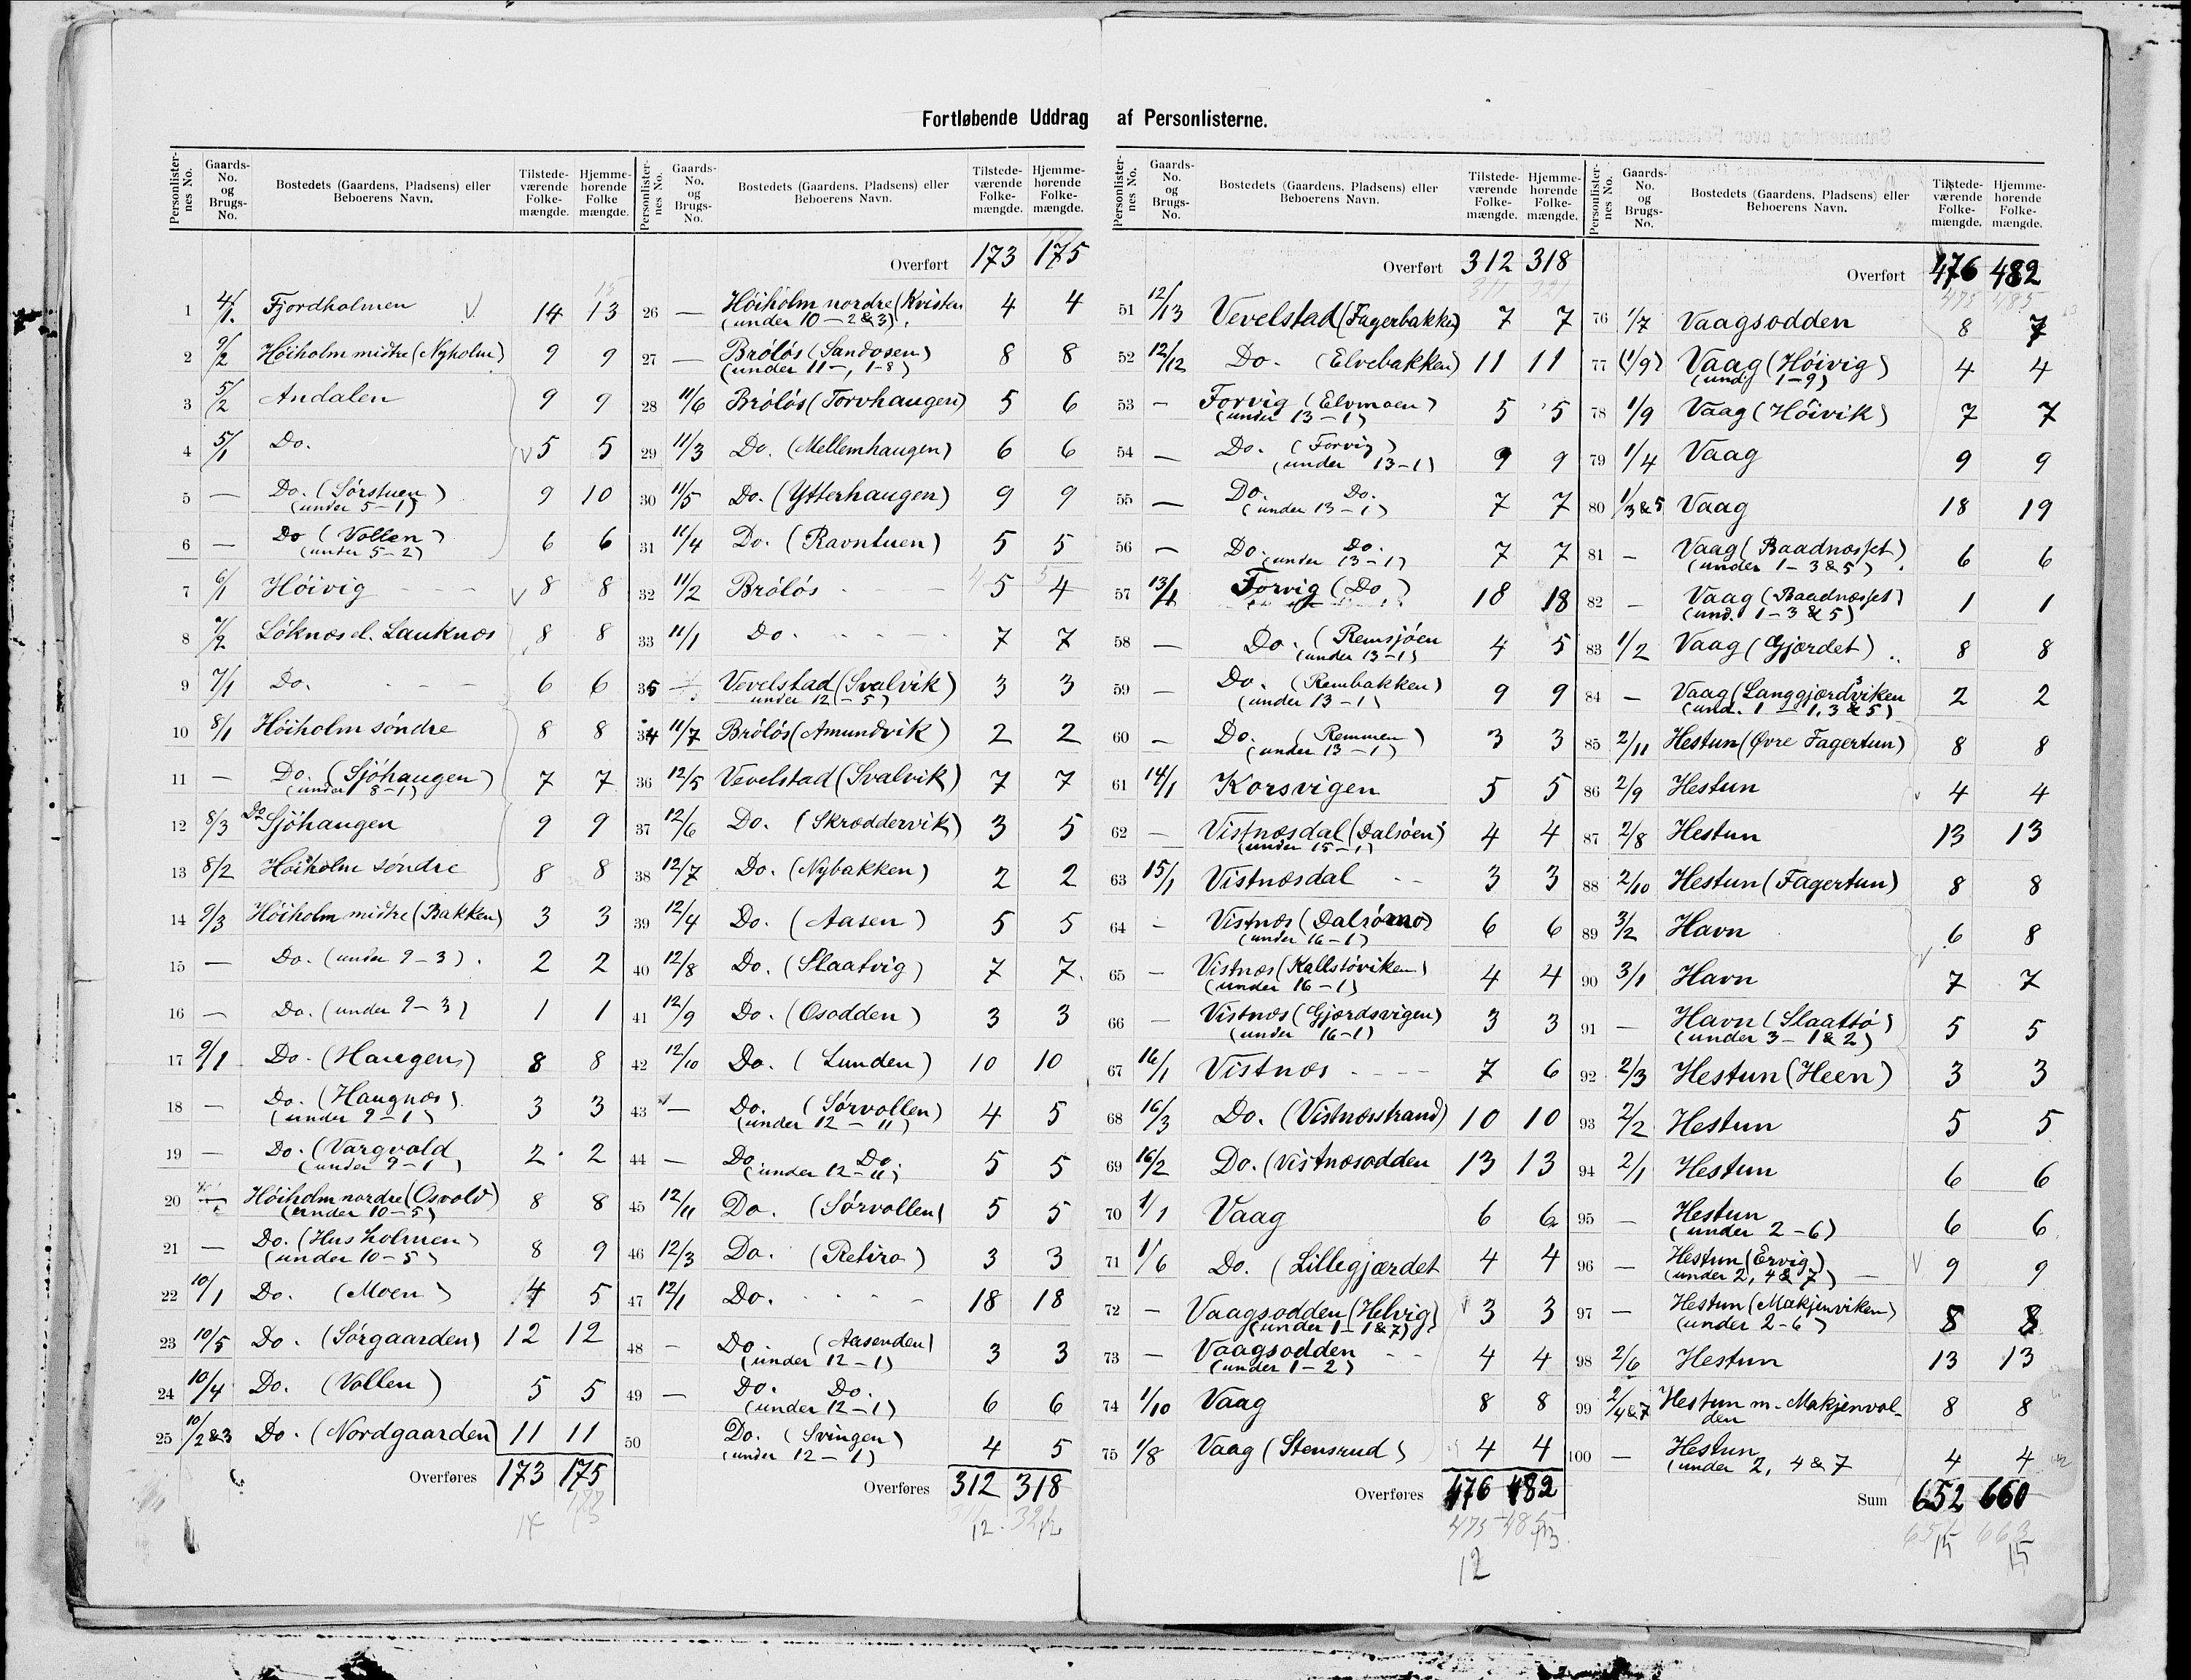 Fortløbende Uddrag af Personlisterne.
Personlisternes No. | Gaards-No. og Brugs-No. | Bostedets (Gaardens, Pladsens) eller Beboerens Navn. | Tilstedeværende Folkemængde. | Hjemmehørende Folkemængde.
1 4/1. Fjordholmen 14 13
2 9/2 Höiholm midtre (Nyholm) 9 9
3 5/2 Andalen 9 9
4 5/1 Do. 5 5
5 — Do. (Sörstuen) 9 10
(under 5-1)
6 — Do (Vollen) 6 6
(under 5-2)
7 6/1 Höivig 8 8
8 7/2 Löknæs el. Lauknæs 8 8
9 7/1 Do. 6 6
10 8/1 Höiholm söndre 8 8
11 — Do. (Sjöhaugen) 7 7
(under 8-1)
12 8/3 Do Sjöhaugen 9 9
13 8/2 Höiholm söndre 8 8
14 9/3 Höiholm midtre (Bakken) 3 3
15 — Do. (under 9-3). 2 2
16 — Do. (under 9-3) 1 1
17 9/1 Do. (Haugen) 8 8
18 — Do. (Haugnæs) 3 3
(under 9-1)
19 — Do. (Vargvold 2 2
(under 9-1)
20 Höiholm nordre (Osvold) 8 8
(under 10-5)
21 — Do. (Husholmen) 8 9
(under 10-5)
22 10/1 Do. (Moen) 4 5
23 10/5 Do. (Sörgaarden) 12 12
24 10/4 Do. (Vollen) 5 5
25 10/2&3 Do. (Nordgaarden) 11 11
Overføres 173 175
Overført 173 175
26 — Höiholm nordre (Kvisten 4 4
(under 10-2&3).
27 — Brölös (Sandosen) 8 8
(under 11-, 1-8)
28 11/6 Brölös (Torvhaugen) 5 6
29 11/3 Do. (Mellemhaugen) 6 6
30 11/5 Do. (Ytterhaugen) 9 9
31 11/4 Do. (Ravntuen) 5 5
32 11/2 Brölös 5 4
33 11/1 Do. 7 7
35 Vevelstad (Svalvik) 3 3
under 12-5)
34 11/7 Brölös (Amundvik) 2 2
36 12/5 Vevelstad (Svalvik) 7 7
37 12/6 Do. (Skræddervik) 3 5
38 12/7 Do. (Nybakken) 2 2
39 12/4 Do. (Aasen) 5 5
40 12/8 Do. (Slaatvig) 7 7.
41 12/9 Do. (Osodden) 3 3
42 12/10 Do. (Lunden) 10 10
43 — Do. (Sörvollen) 4 5
(under 12-11)
44 — Do. Do. 5 5
(under 12-11)
45 12/11 Do. (Sörvollen) 5 5
46 12/3 Do. (Retiro) 3 3
47 12/1 Do. 18 18
48 — Do. (Aasenden) 3 3
(under 12-1)
49 — Do. Do. 6 6
(under 12-1)
50 Do. (Svingen) 4 5
(under 12-1)
Overføres 312 318
Overført 312 318
311 321
51 12/13 Vevelstad (Fagerbakken) 7 7
52 12/12 Do. (Elvebakken) 11 11
53 — Forvig (Elvmoen) 5 5
(under 13-1)
54 — Do. (Forvig) 9 9
(under 13-1)
55 — Do. Do. 7 7
(under 13-1)
56 — Do. Do. 7 7
(under 13-1)
57 13/1 Forvig (Do) 18 18
58 — Do. (Remsjöen 4 5
(under 13-1)
59 — Do. (Rembakken) 9 9
(under 13-1)
60 — Do. (Remmen) 3 3
(under 13-1)
61 14/1 Korsvigen 5 5
62 — Vistnæsdal (Dalsöen) 4 4
(under 15-1)
63 15/1 Vistnæsdal 3 3
64 - Vistnæs (Dalsömo) 6 6
(under 16-1)
65 — Vistnæs (Kallstöviken) 4 4
(under 16-1)
66 — Vistnæs (Gjærdsvigen) 3 3
(under 16-1)
67 16/1 Vistnæs 7 6
68 16/3 Do. (Vistnæsstrand) 10 10
69 16/2 Do. (Vistnæsodden 13 13
70 1/1 Vaag 6 6
71 1/6 Do. (Lillegjærdet 4 4
72 — Vaagsodden (Helvig) 3 3
(under 1-1&7)
73 — Vaagsodden 4 4
(under 1-2)
74 1/10 Vaag 8 8
75 1/8 Vaag (Stensrud) 4 4
Overføres 476 482
475 485
12
Overført 476 482
475 485
76 1/7 Vaagsodden 8 7
77 (1/9) Vaag (Höivig) 4 4
(und. 1-9)
78 1/9 Vaag (Höivik) 7 7
79 1/4 Vaag 9 9
80 1/3&5 Vaag 18 19
81 - Vaag (Baadnæsset) 6 6
(under 1-3&5)
82 - Vaag (Baadnæsset) 1 1
(und. 1-3&5)
83 1/2 Vaag (Gjærdet) 8 8
84 - Vaag (Langgjærdsviken 2 2
(und. 1 - 1, 3 & 5)
85 2/11 Hestun (Øvre Fagertun) 8 8
86 2/9 Hestun 4 4
87 2/8 Hestun 13 13
88 2/10 Hestun (Fagertun) 8 8
89 3/2 Havn 6 8
90 3/1 Havn 7 7
91 — Havn (Slaattö) 5 5
(under 3-1&2)
92 2/3 Hestun (Heen) 3 3
93 2/2 Hestun 5 5
94 2/1 Hestun 6 6
95 — Hestun 6 6
(under 2-6)
96 — Hestun (Ervig) 9 9
(under 2, 4&7)
97 — Hestun (Makjenviken) 8 8
(under 2-6)
98 2/6 Hestun 13 13
99 2/4&7 Hestun m. Makjenvol- 8 8
den
100 — Hestun 4 4
(under 2, 4&7
Sum 652 660